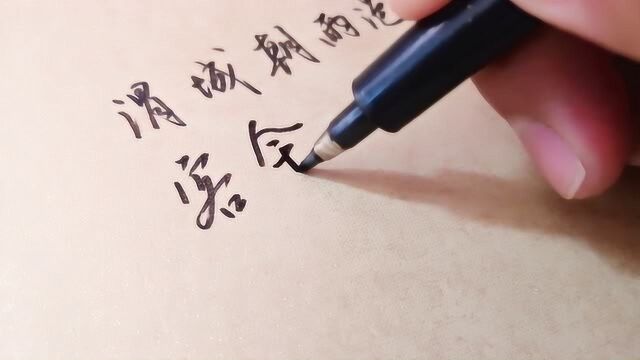 渭城朝雨浥
客舍